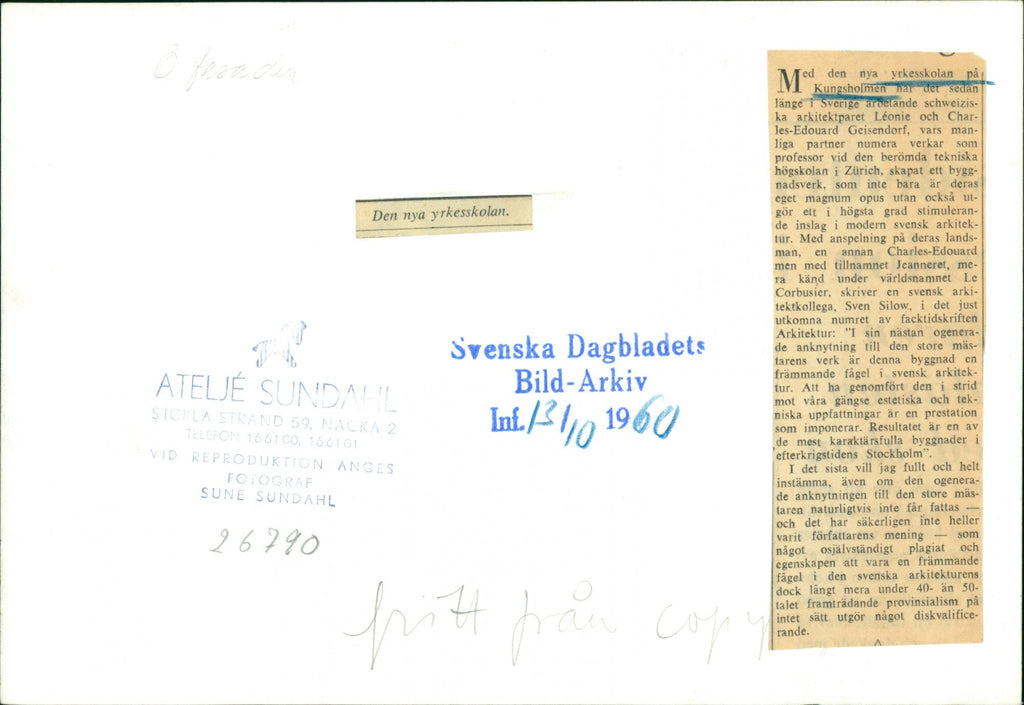 Ö fasaden
Den nya yrkesskolan.
ATELJÉ SUNDAHL
SICKLA STRAND 59, NACKA 2
TELEFON 166100, 166101
VID REPRODUKTION ANGES
FOTOGRAF
SUNE SUNDAHL
26790
Svenska Dagbladets
Bild-Arkiv
Inf. 13/10 1960
fritt från copy
Med den nya yrkesskolan på
Kungsholmen har det sedan
länge i Sverige arbetande schweizis-
ka arkitektparet Léonie och Char-
les-Edouard Geisendorf, vars man-
liga partner numera verkar som
professor vid den berömda tekniska
högskolan i Zürich, skapat ett bygg-
nadsverk, som inte bara är deras
eget magnum opus utan också ut-
gör ett i högsta grad stimuleran-
de inslag i modern svensk arkitek-
tur. Med anspelning på deras lands-
man, en annan Charles-Edouard
men med tillnamnet Jeanneret, me-
ra känd under världsnamnet Le
Corbusier, skriver en svensk arki-
tektkollega, Sven Silow, i det just
utkomna numret av facktidskriften
Arkitektur: "I sin nästan ogenera-
de anknytning till den store mäs-
tarens verk är denna byggnad en
främmande fågel i svensk arkitek-
tur. Att ha genomfört den i strid
mot våra gängse estetiska och tek-
niska uppfattningar är en prestation
som imponerar. Resultatet är en av
de mest karaktärsfulla byggnader i
efterkrigstidens Stockholm".
I det sista vill jag fullt och helt
instämma, även om den ogenera-
de anknytningen till den store mäs-
taren naturligtvis inte får fattas —
och det har säkerligen inte heller
varit författarens mening — som
något osjälvständigt plagiat och
egenskapen att vara en främmande
fågel i den svenska arkitekturens
dock långt mera under 40- än 50-
talet framträdande provinsialism på
intet sätt utgör något diskvalifice-
rande.